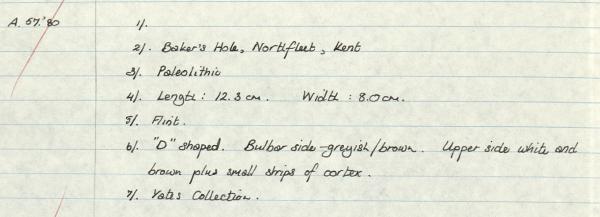 A.57.'80
1/.
2/. Baker's Hole, Northfleet, Kent
3/. Paleolithic
4/. Length : 12.3 cm. Width : 8.0 cm.
5/. Flint.
6/. "D" shaped. Bulbar side - greyish/brown. Upper side white and
brown plus small strips of cortex.
7/. Yates Collection.